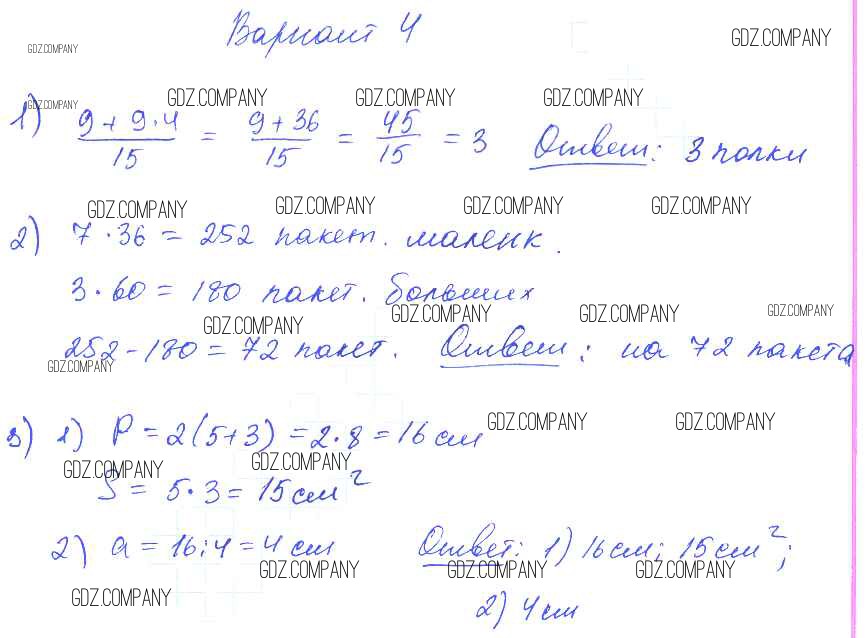 Вариант 4
GDZ.COMPANY GDZ.COMPANY
GDZ.COMPANY GDZ.COMPANY GDZ.COMPANY GDZ.COMPANY
1) (9 + 9·4)/15 = (9 + 36)/15 = 45/15 = 3 Ответ: 3 полки
GDZ.COMPANY GDZ.COMPANY GDZ.COMPANY GDZ.COMPANY
2) 7 · 36 = 252 пакет. маленк.
3 · 60 = 180 пакет. больших
GDZ.COMPANY GDZ.COMPANY GDZ.COMPANY GDZ.COMPANY
252 - 180 = 72 пакет. Ответ: на 72 пакета
GDZ.COMPANY
3) 1) P = 2(5+3) = 2·8 = 16 см
GDZ.COMPANY GDZ.COMPANY
GDZ.COMPANY GDZ.COMPANY
S = 5·3 = 15 см²
2) a = 16:4 = 4 см Ответ: 1) 16 см; 15 см²;
GDZ.COMPANY GDZ.COMPANY GDZ.COMPANY
GDZ.COMPANY
2) 4 см